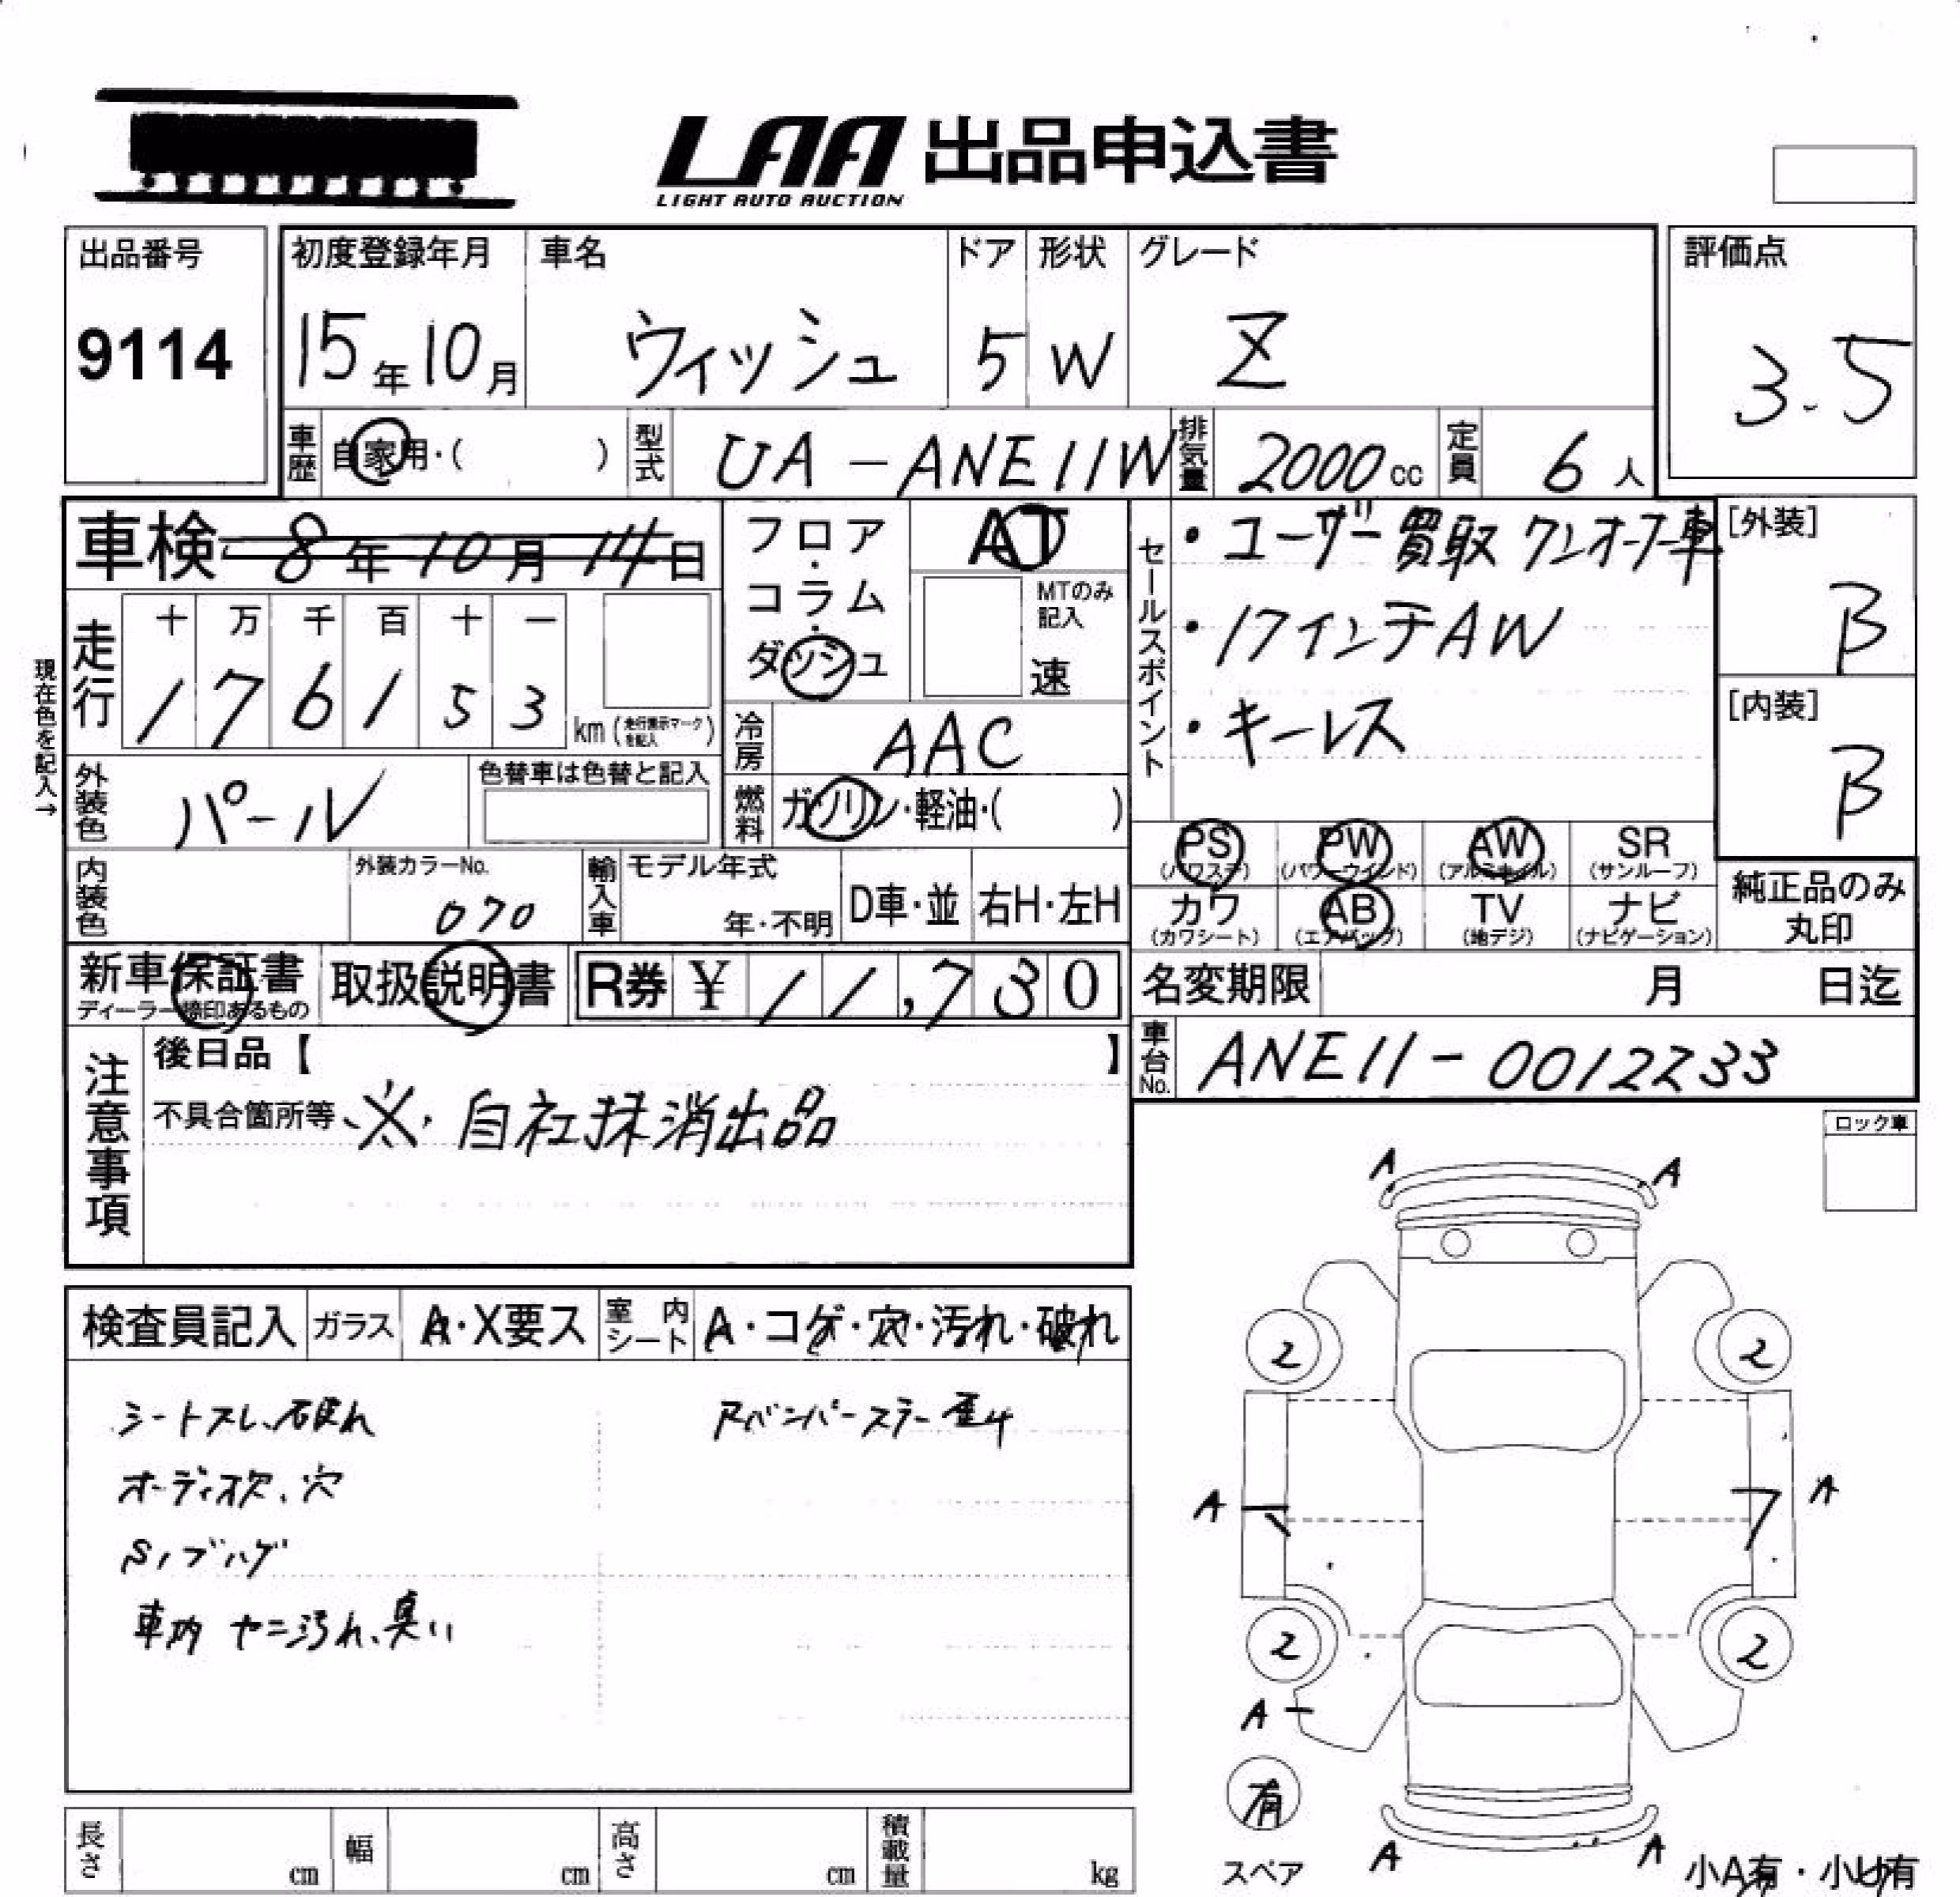 LAA 出品申込書
LIGHT AUTO AUCTION
出品番号
9114
初度登録年月
15年10月
車名
ウィッシュ
ドア
5
形状
W
グレード
Z
評価点
3.5
車歴
自家用・( )
型式
UA-ANE11W
排気量
2000cc
定員
6人
車検 8年10月14日
現在色を記入→
走行
十 万 千 百 十 一
1 7 6 1 5 3 km(走行表示マークを記入)
フロア・コラム・ダッシュ
AT
MTのみ記入
速
冷房
AAC
燃料
ガソリン・軽油・( )
セールスポイント
・ユーザー買取 ワンオーナー車
・17インチAW
・キーレス
[外装]
B
[内装]
B
外装色
パール
色替車は色替と記入
内装色
外装カラーNo.
070
輸入車
モデル年式
年・不明
D車・並
右H・左H
PS (パワステ)
PW (パワーウインド)
AW (アルミホイル)
SR (サンルーフ)
カワ (カワシート)
AB (エアバッグ)
TV (地デジ)
ナビ (ナビゲーション)
純正品のみ丸印
新車保証書
ディーラー捺印あるもの
取扱説明書
R券 ¥ 11,730
名変期限 月 日迄
車台No.
ANE11-0012233
注意事項
後日品【 】
不具合箇所等、※、自社抹消出品
ロック車
検査員記入
ガラス A・X要ス
室内シート A・コゲ・穴・汚れ・破れ
シートスレ、破れ
オーディオ欠、穴
Sノブハゲ
車内 ヤニ汚れ、臭い
バンパーステー歪み
A A
2 2
A A
2 2
A
有
スペア
A A
小A有・小U有
長さ cm
幅 cm
高さ cm
積載量 kg